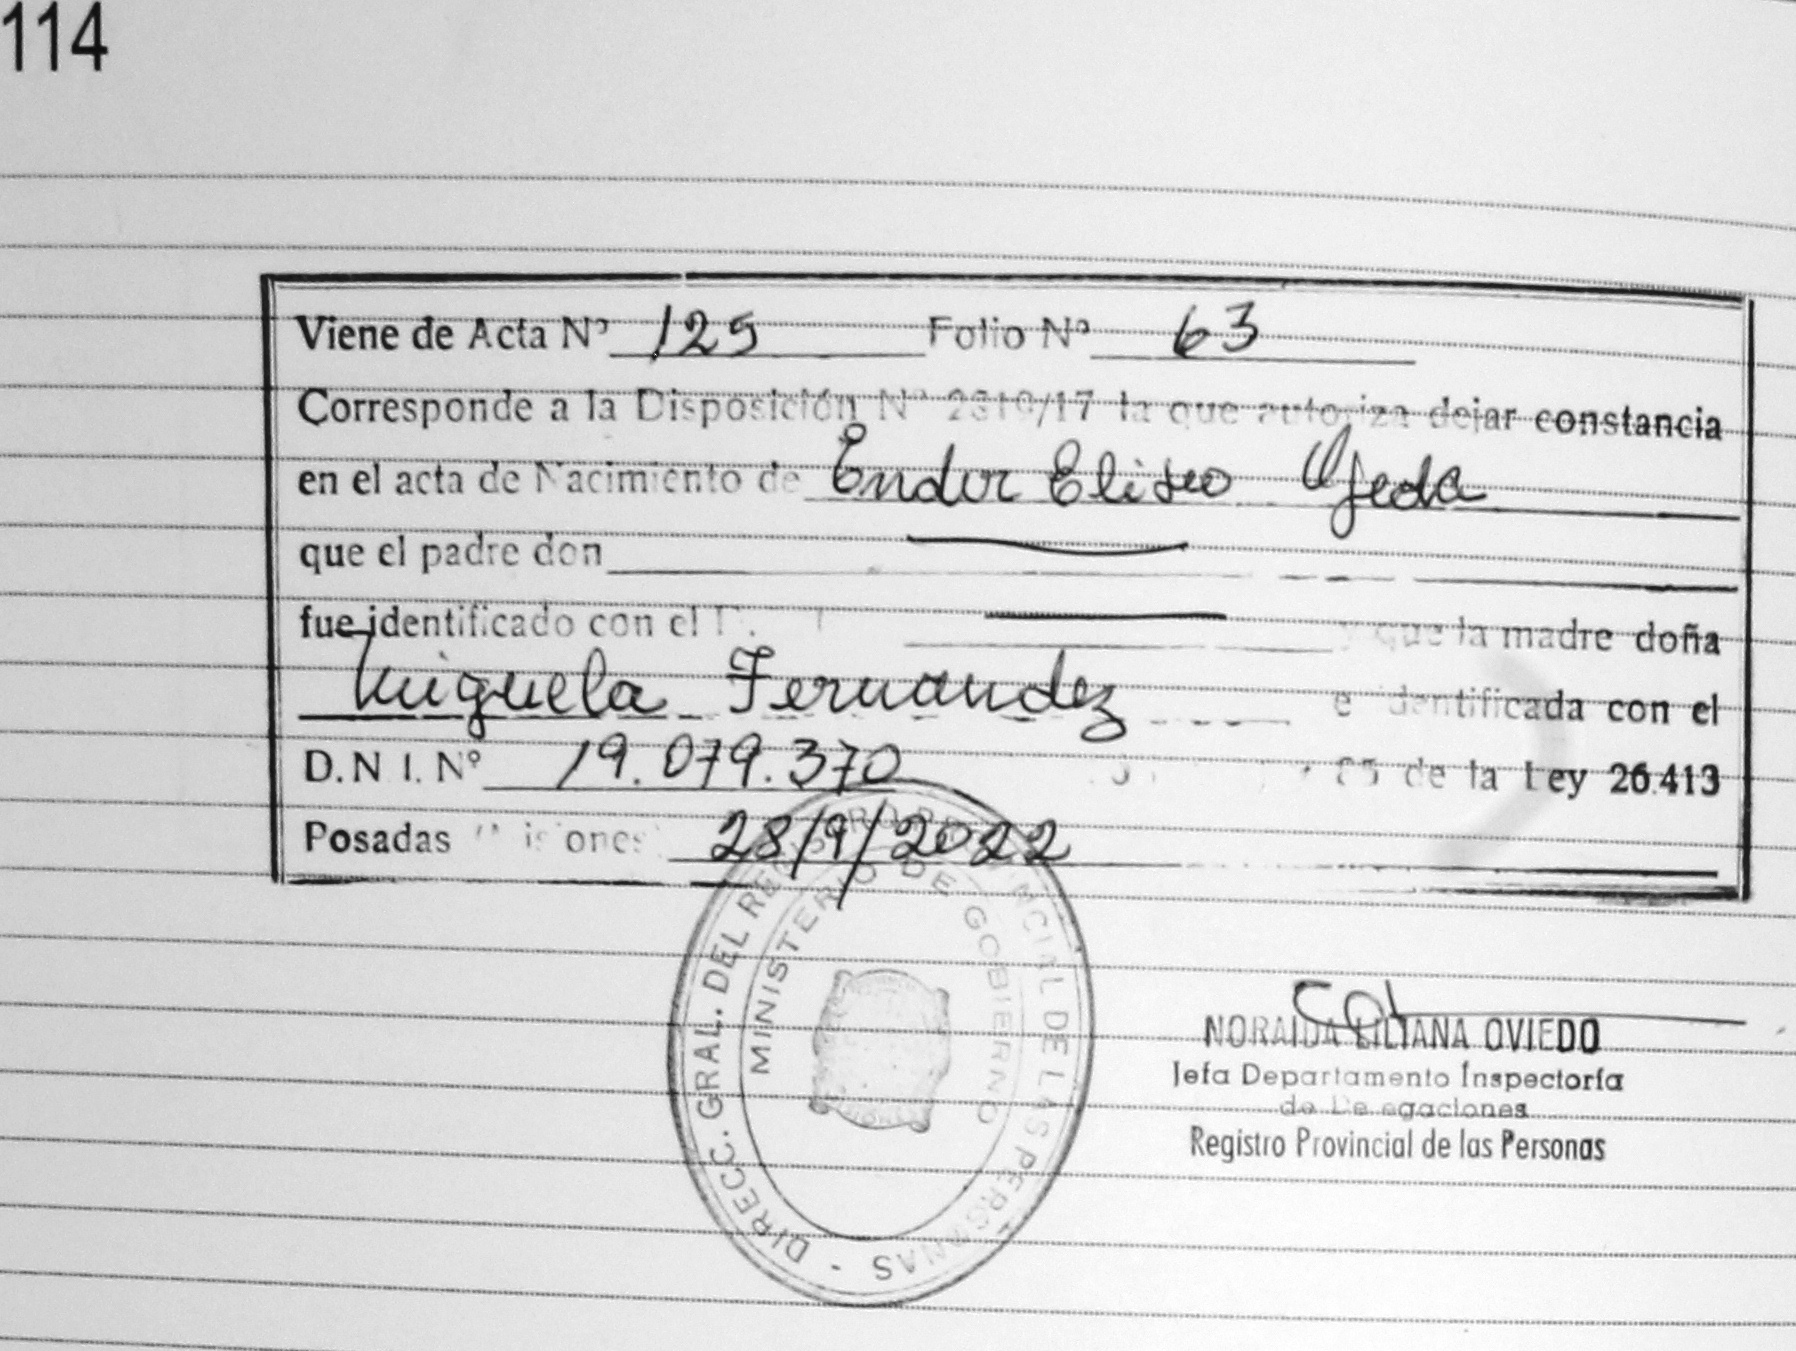 114
Viene de Acta Nº 125 Folio Nº 63
Corresponde a la Disposición Nº /17 la que autoriza dejar constancia
en el acta de Nacimiento de Endor Eliseo Ojeda
que el padre don
fue identificado con el que la madre doña
Miguela Fernandez identificada con el
D.N.I. Nº 19.079.370 de la Ley 26.413
Posadas Misiones 28/9/2022
DIRECC. GRAL. DEL REGISTRO PROVINCIAL DE LAS PERSONAS
MINISTERIO DE GOBIERNO
NORAIDA LILIANA OVIEDO
Jefa Departamento Inspectoría
de Delegaciones
Registro Provincial de las Personas